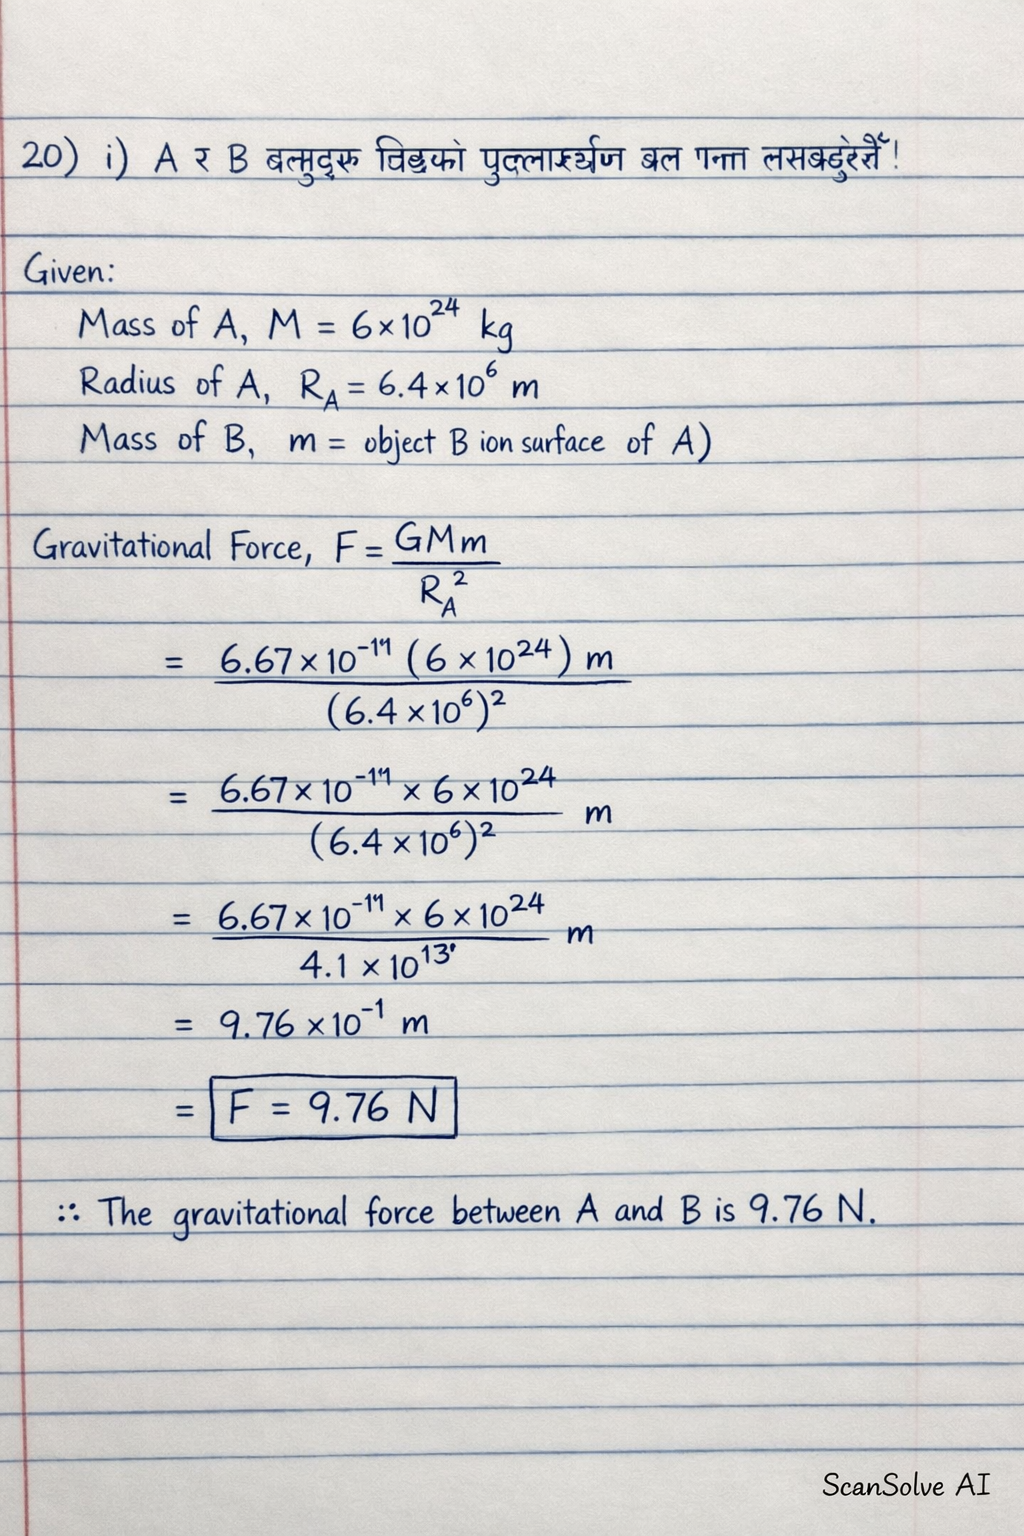 20) i) A र B बल
Given:
Mass of A, M = 6×10²⁴ kg
Radius of A, R_A = 6.4×10⁶ m
Mass of B, m = object B ion surface of A)
Gravitational Force, F = GMm
R_A²
= 6.67×10⁻¹¹ (6×10²⁴) m
(6.4×10⁶)²
= 6.67×10⁻¹¹ × 6×10²⁴ m
(6.4×10⁶)²
= 6.67×10⁻¹¹ × 6×10²⁴ m
4.1×10¹³
= 9.76×10⁻¹ m
= F = 9.76 N
∴ The gravitational force between A and B is 9.76 N.
ScanSolve AI